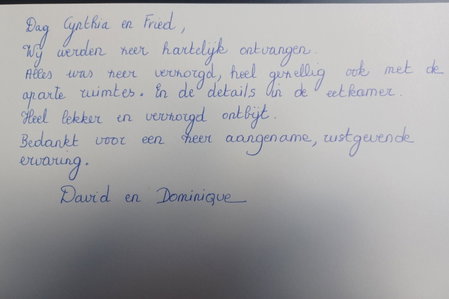 Dag Cynthia en Fried,
Wij werden zeer hartelijk ontvangen.
Alles was zeer verzorgd, heel gezellig ook met de
aparte ruimtes. En de details in de eetkamer.
Heel lekker en verzorgd ontbijt.
Bedankt voor een zeer aangename, rustgevende
ervaring.
David en Dominique